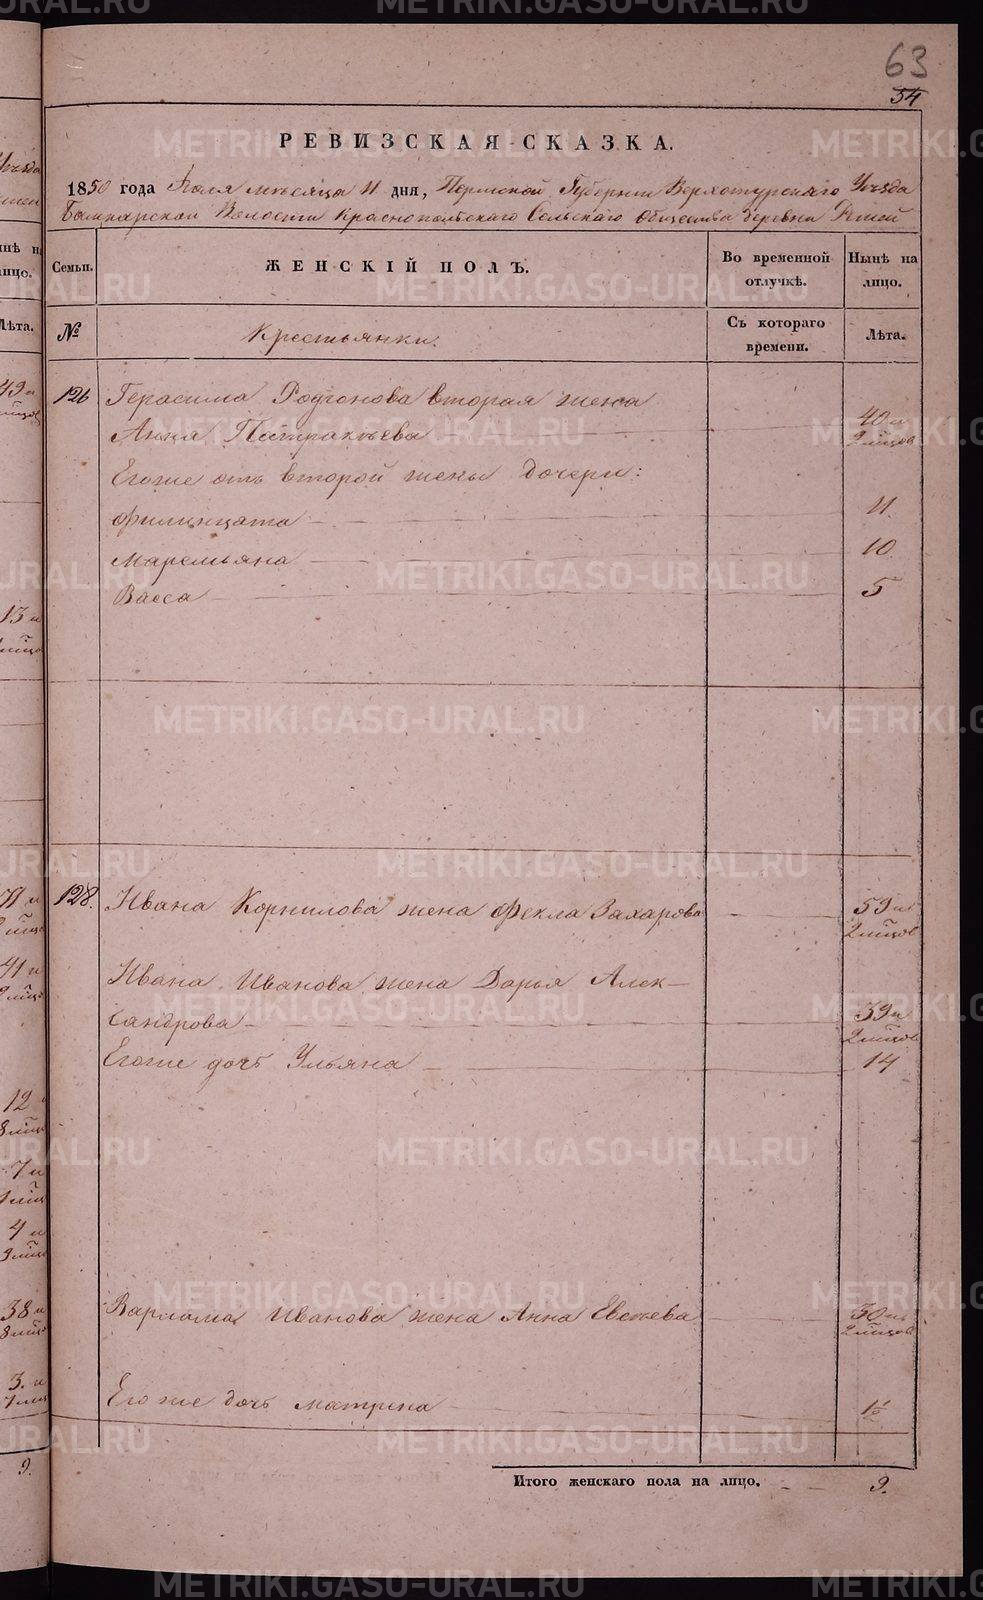 63
54
РЕВИЗСКАЯ СКАЗКА.
1850 года Іюля мѣсяца 11 дня, Пермской Губерніи Верхотурскаго Уѣзда
Башкарской Волости Краснопольскаго Сельскаго Общества деревни
Семьи. ЖЕНСКІЙ ПОЛЪ. Во временной отлучкѣ. Нынѣ на лицо.
№ Крестьянки. Съ котораго времени. Лѣта.
126 Герасима Родіонова вторая жена
Анна Патракѣева 40 и 2 мѣсцов
Егоже отъ второй жены дочери:
Филицата 11
Маремьяна 10
Васса 5
128. Ивана Корнилова жена Фекла Захарова 59 и 2 мѣсцов
Ивана Иванова жена Дарья Алек-
сандрова 39 и 2 мѣсцов
Егоже дочь Ульяна 14
Варлама Иванова жена Анна 30 и 2 мѣсцов
Его же дочь Матрена 1½
Итого женскаго пола на лицо. 9.